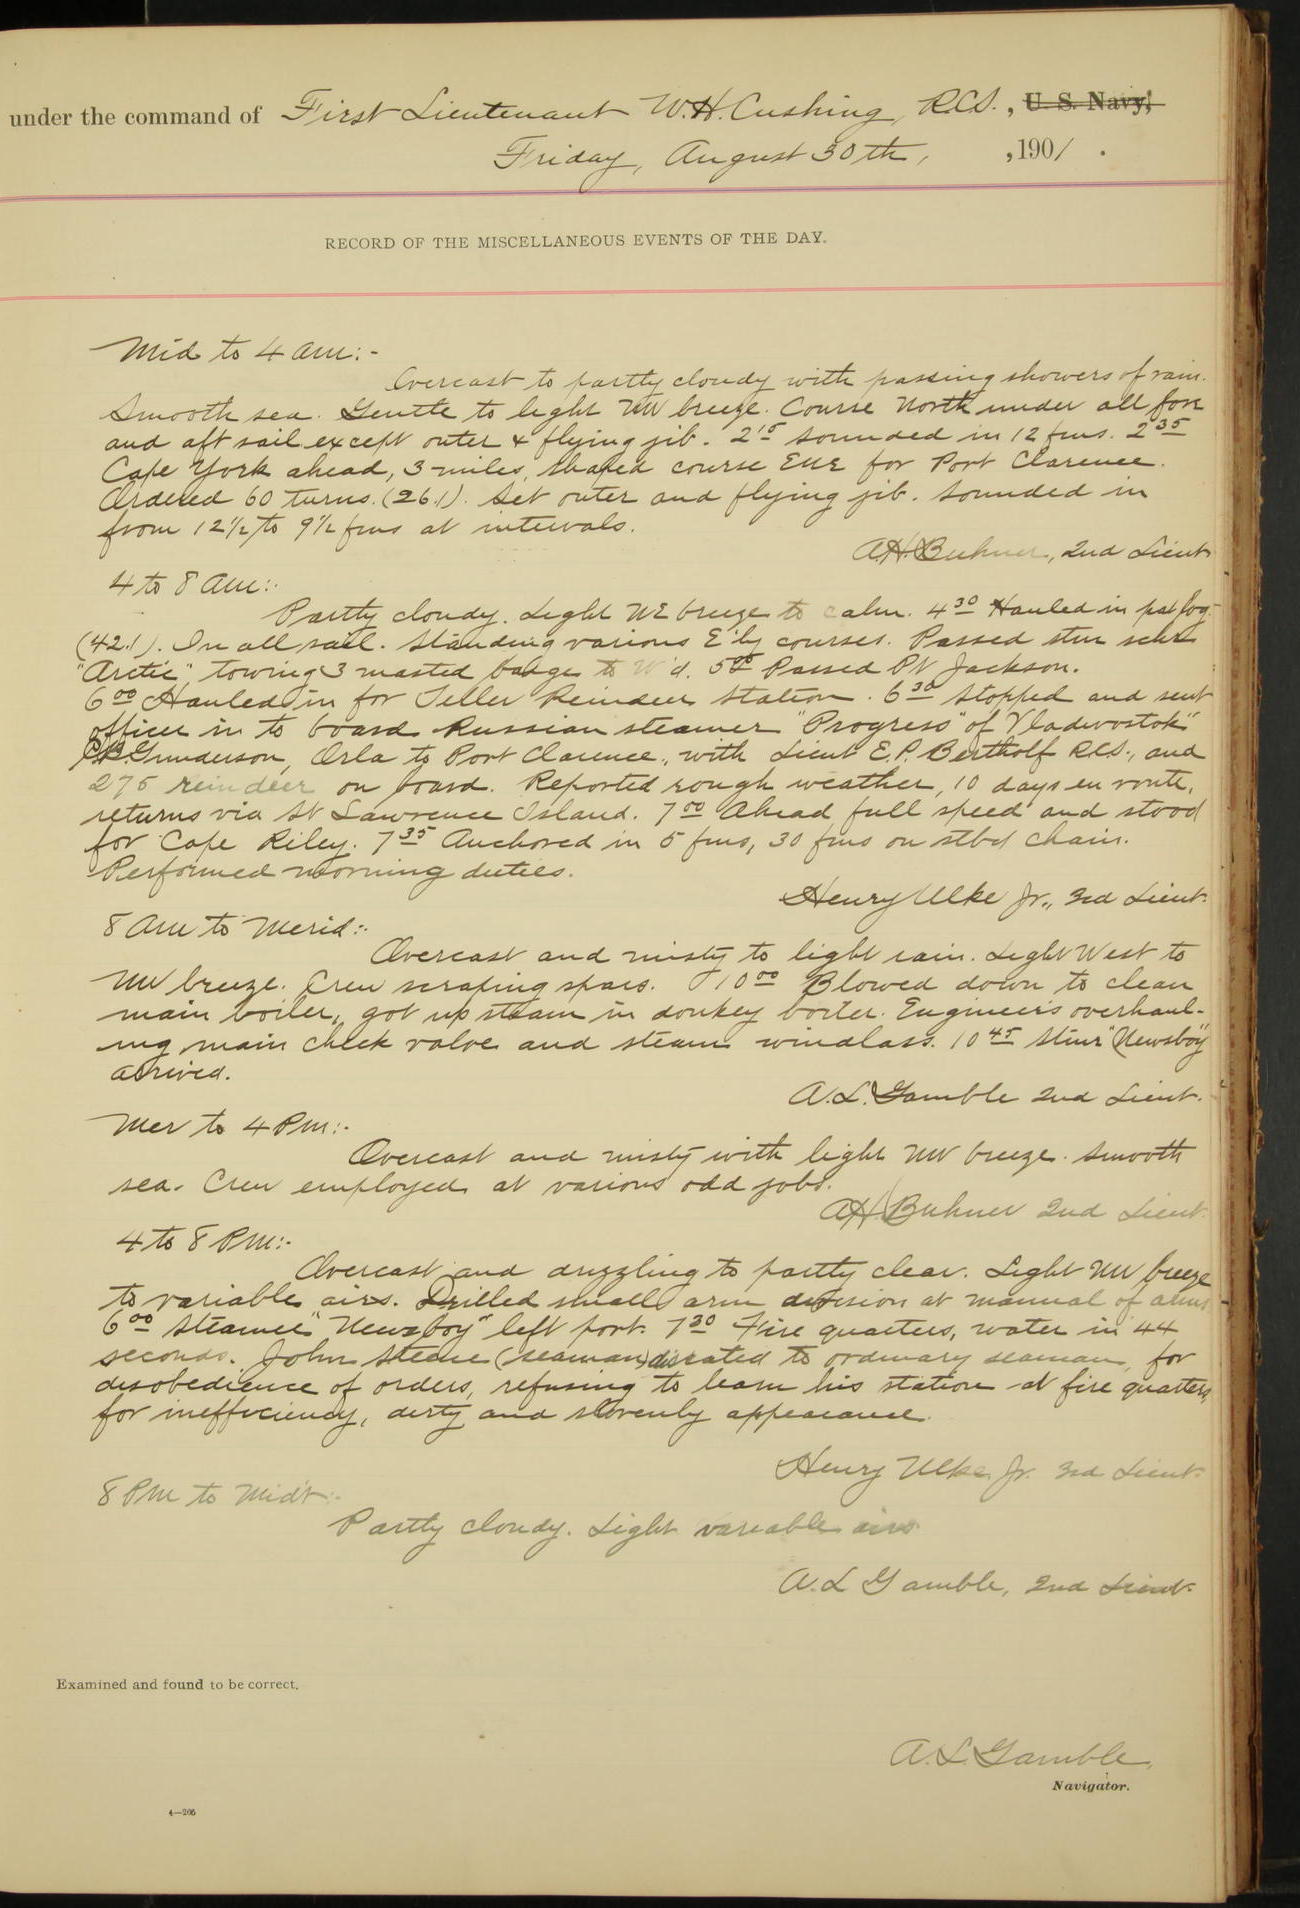 under the command of First Lieutenant W.H. Cushing, R.C.S., U. S. Navy,
Friday, August 30th, , 1901 .
RECORD OF THE MISCELLANEOUS EVENTS OF THE DAY.
Mid to 4 am:-
Overcast to partly cloudy with passing showers of rain.
Smooth sea. Gentle to light NW breeze. Course North under all fore
and aft sail except outer & flying jib. 2 15 Sounded in 12 fms. 2 35
Cape York ahead, 3 miles, shaped course ENE for Port Clarence.
Ordered 60 turns. (26.1). Set outer and flying jib. Sounded in
from 12 1/2 to 9 1/2 fms at intervals.
A.H. Buhner, 2nd Lieut.
4 to 8 am:-
Partly cloudy. Light NE breeze to calm. 4 30 Hauled in pat log.
(42.1). In all sail. Standing various E'ly courses. Passed stm schr
"Arctic" towing 3 masted barge to W'd. Passed Pt Jackson.
6 00 Hauled in for Teller Reindeer Station. 6 30 Stopped and sent
officer in to board Russian steamer "Progress" of "Vladivostok"
Gunderson, Orla to Port Clarence, with Lieut E.P. Bertholf R.C.S., and
275 reindeer on board. Reported rough weather, 10 days en route,
returns via St Lawrence Island. 7 00 Ahead full speed and stood
for Cape Riley. 7 35 Anchored in 5 fms, 30 fms on stbd chain.
Performed morning duties.
Henry Ulke Jr., 3rd Lieut.
8 am to Merid:-
Overcast and misty to light rain. Light West to
NW breeze. Crew scraping spars. 10 00 Blowed down to clean
main boiler, got up steam in donkey boiler. Engineers overhaul-
ing main check valve and steam windlass. 10 45 Stmr "Newsboy"
arrived.
A.L. Gamble 2nd Lieut.
Mer to 4 P.m:-
Overcast and misty with light NW breeze. Smooth
sea. Crew employed at various odd jobs.
A.H. Buhner 2nd Lieut.
4 to 8 P.m:-
Overcast and drizzling to partly clear. Light NW breeze
to variable airs. Drilled small arm division at manual of arms
6 00 Steamer "Newsboy" left port. 7 30 Fire quarters, water in 44
seconds. John Steene (seaman) disrated to ordinary seaman, for
disobedience of orders, refusing to learn his station at fire quarters,
for inefficiency, dirty and slovenly appearance.
Henry Ulke Jr. 3rd Lieut.
8 Pm to Midt:-
Partly cloudy. Light variable airs.
A.L Gamble, 2nd Lieut.
Examined and found to be correct.
A.L. Gamble,
Navigator.
4—206